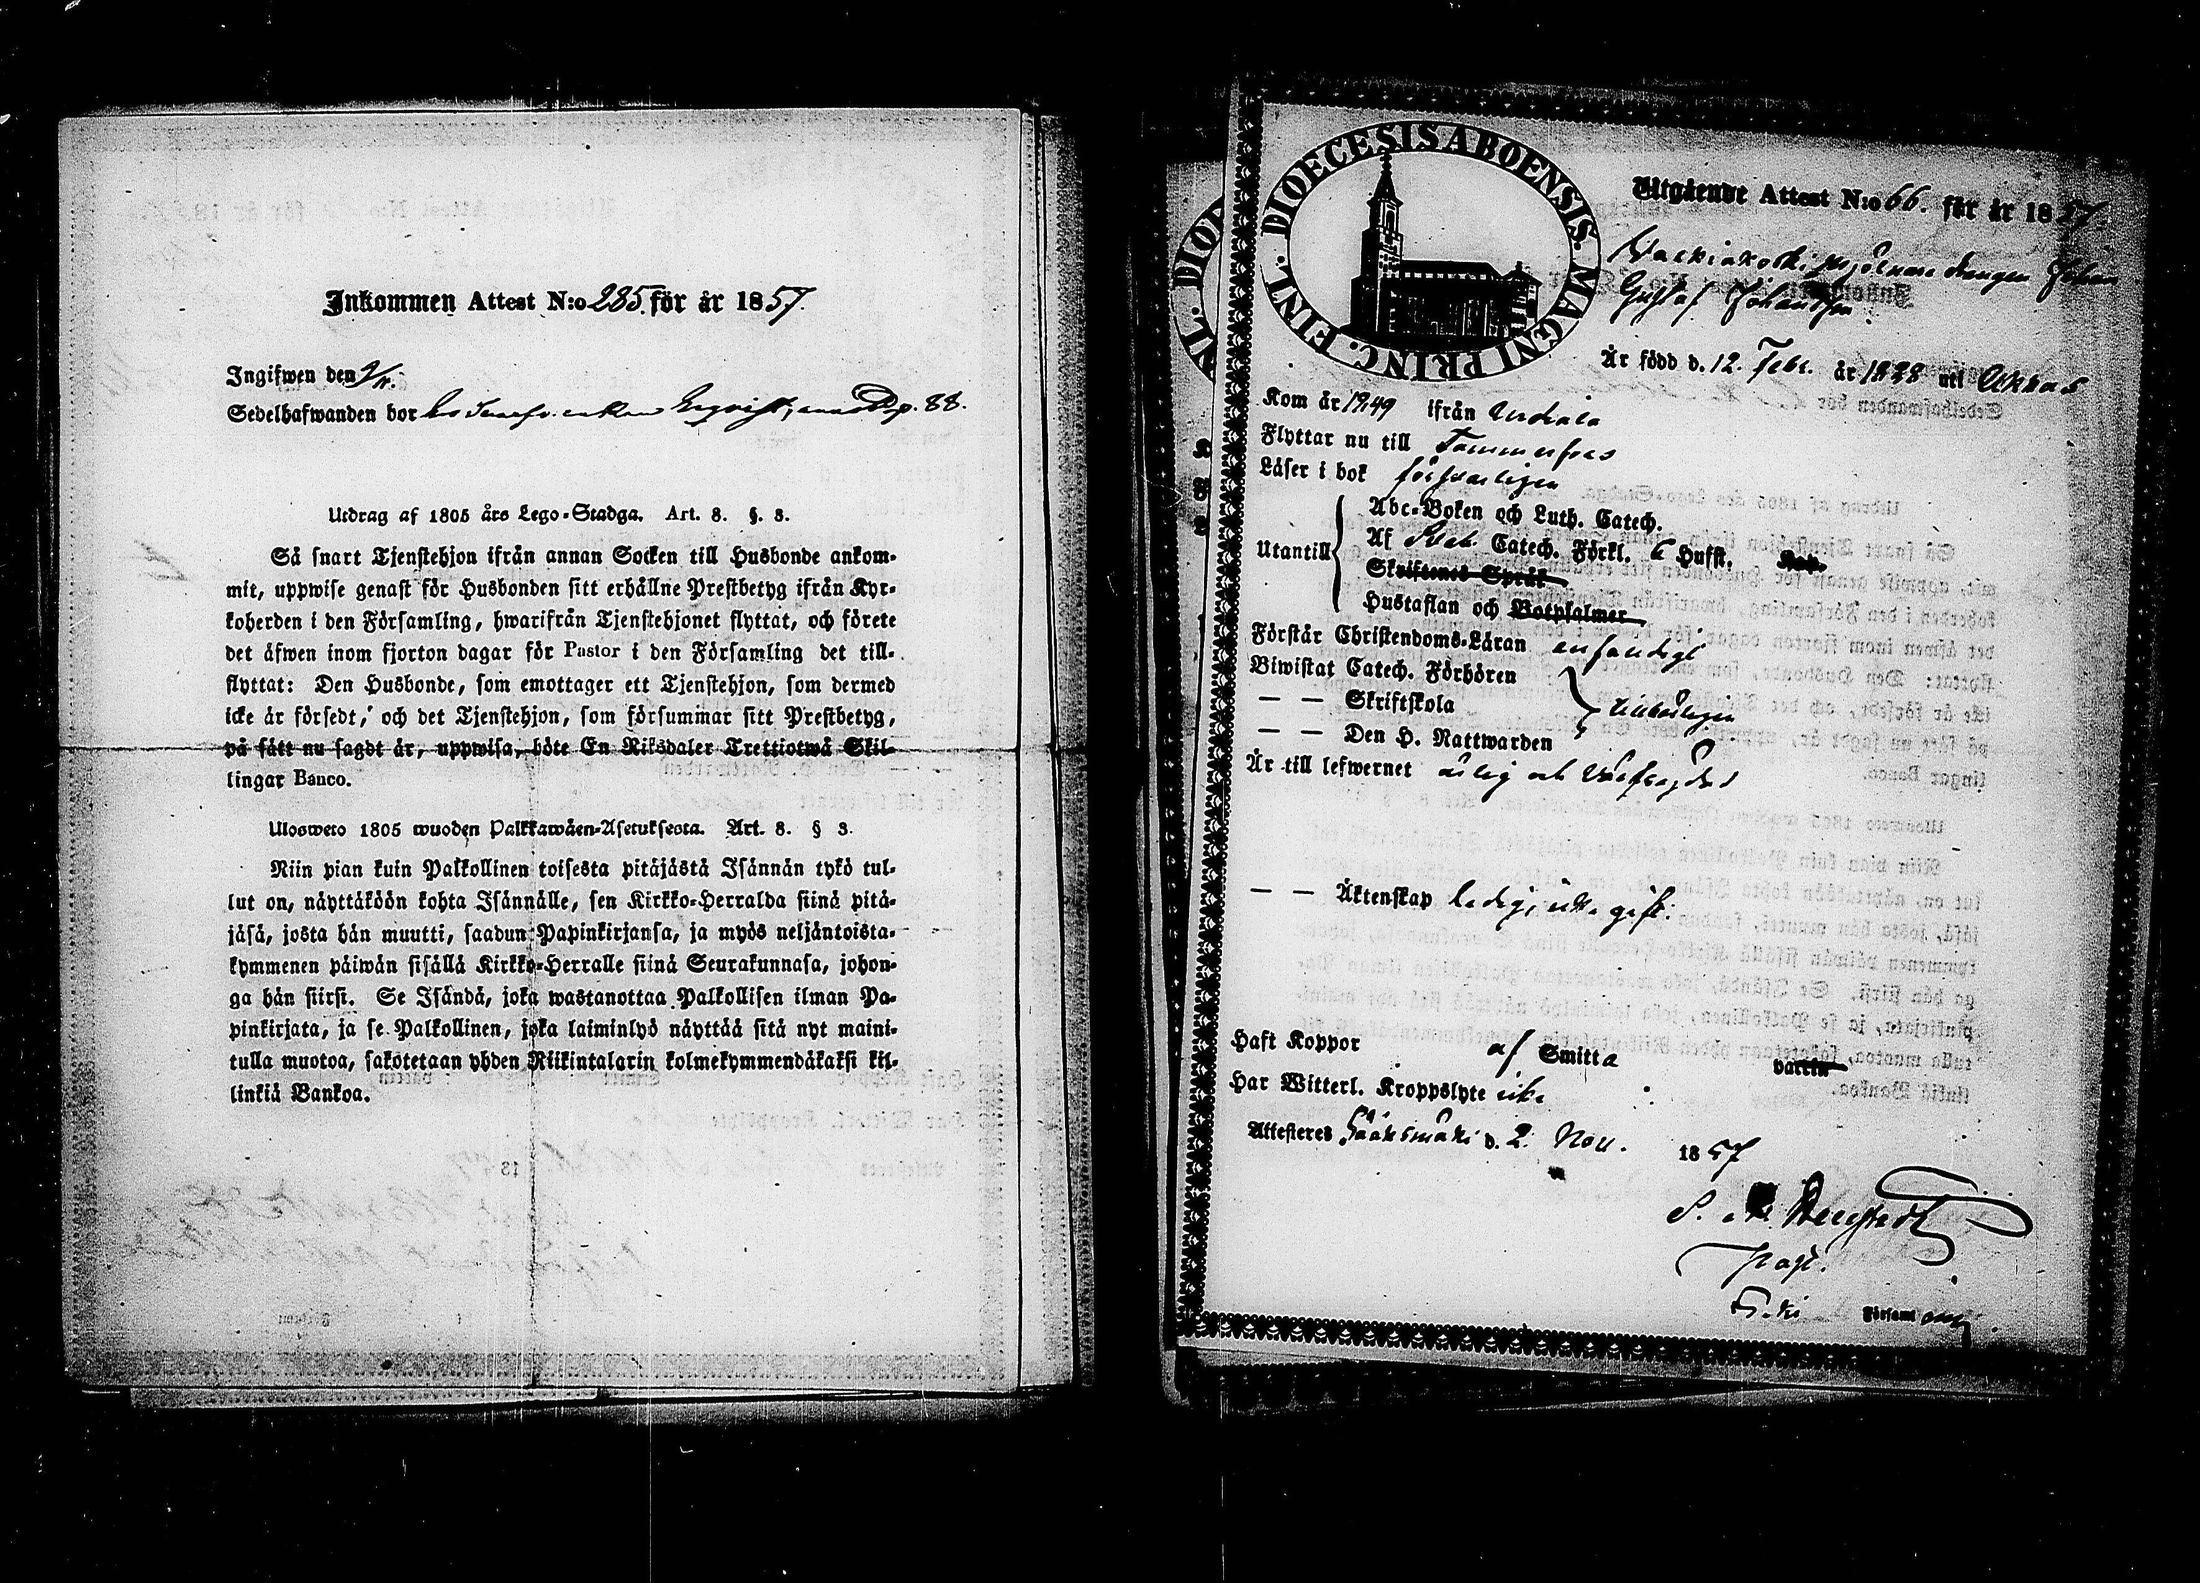 Inkommen Attest N:o 285. för år 1857.
Ingifwen den 9/11.
Sedelhafwanden bor hos enkan pag. 88.
Utdrag af 1805 års Lego-Stadga. Art. 8. §. 3.
Så snart Tjenstehjon ifrån annan Socken till Husbonde ankom-
mit, uppwise genast för Husbonden sitt erhållne Prestbetyg ifrån Kyr-
koherden i den Församling, hwarifrån Tjenstehjonet flyttat, och förete
det äfwen inom fjorton dagar för Pastor i den Församling det till-
flyttat: Den Husbonde, som emottager ett Tjenstehjon, som dermed
icke är försedt, och det Tjenstehjon, som försummar sitt Prestbetyg,
på sätt nu sagdt är, uppwisa, böte En Riksdaler Trettiotwå Skil-
lingar Banco.
Ulosweto 1805 wuoden Palkkawäen-Asetuksesta. Art. 8. § 3.
Niin pian kuin Palkollinen toisesta pitäjästä Isännän tykö tul-
lut on, näyttäköön kohta Isännälle, sen Kirkko-Herralda siinä pitä-
jäsä, josta hän muutti, saadun Papinkirjansa, ja myös neljäntoista-
kymmenen päiwän sisällä Kirkko-Herralle siinä Seurakunnasa, johon-
ga hän siirsi. Se Isändä, joka wastanottaa Palkollisen ilman Pa-
pinkirjata, ja se Palkollinen, joka laiminlyö näyttää sitä nyt maini-
tulla muotoa, sakotetaan yhden Riikintalarin kolmekymmendäkaksi kil-
linkiä Bankoa.
DIOECESIS ABOENSIS. MAGNI PRINC. FINL.
Utgående Attest N:o 66. för år 1857
Walkiakoski drengen Johan
Gustaf Johansson.
Är född d. 12. Febr. år 1828 uti Akkas
Kom år 1849 ifrån Urdiala
Flyttar nu till Tammerfors
Läser i bok försvarligen
Utantill
Abc-Boken och Luth. Catech.
Af Cateh. Förkl. 6 Hufst.
Skriftenes Språk
Hustaflan och Botpsalmer
Förstår Christendoms-Läran enfaldigt
Biwistat Catech. Förhören
— — Skriftskola tillbörligen
— — Den H. Nattwarden
Är till lefwernet ärlig och välfrägdad
— — Äktenskap ledig, icke gift.
Haft Koppor af Smitta
Har Witterl. Kroppslyte icke
Attesteres Sääksmäki d. 2. Nov. 1857
Past.
Församl